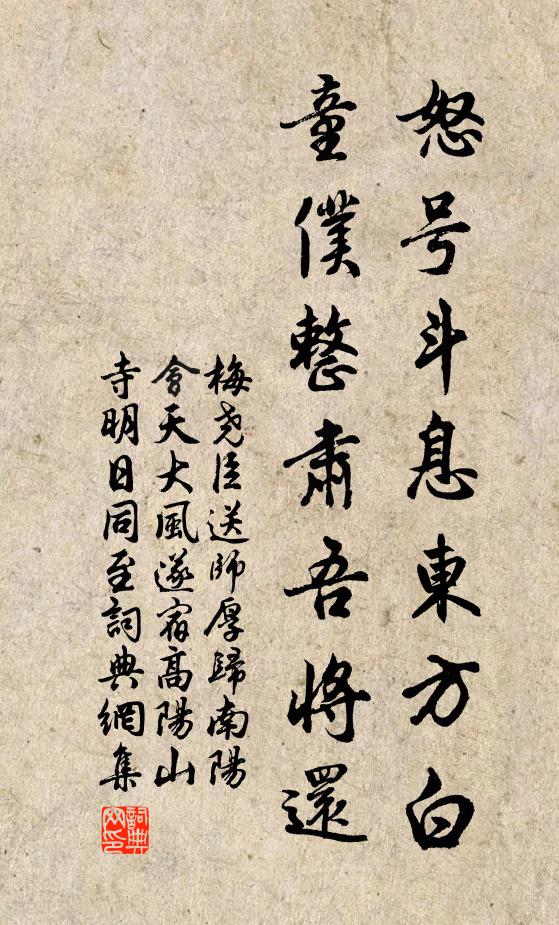 怒号斗息東方白
童僕整肅吾將還
梅堯臣送師厚歸南陽
會天大風遂宿高陽山
寺明日同至詞典網集
詞典
网印